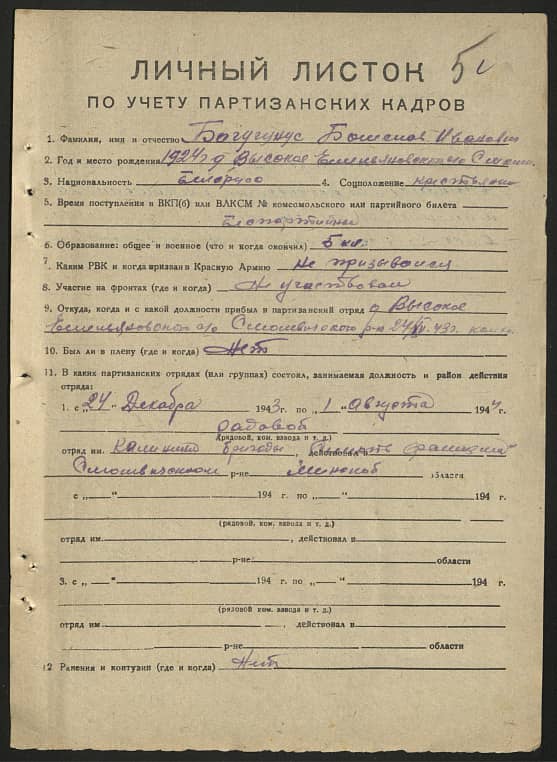 ЛИЧНЫЙ ЛИСТОК
ПО УЧЕТУ ПАРТИЗАНСКИХ КАДРОВ
1. Фамилия, имя и отчество Иванович
2. Год и место рождения 1924 г д Высокое
3. Национальность белорус 4. Соцположение крестьянин
5. Время поступления в ВКП(б) или ВЛКСМ № комсомольского или партийного билета
Беспартийный
6. Образование: общее и военное (что и когда окончил) 5 кл.
7. Каким РВК и когда призван в Красную Армию не призывался
8. Участие на фронтах (где и когда) Не участвовал
9. Откуда, когда и с какой должности прибыл в партизанский отряд д Высокое
с/с Смолевичского р-на
10. Был ли в плену (где и когда) Нет
11. В каких партизанских отрядах (или группах) состоял, занимаемая должность и район действия
отряда:
1. с „24" Декабря 1943 г. по „1" августа 1944 г.
рядовой
(рядовой, ком. взвода и т. д.)
отряд им. Калинина бригады, действовал в „Смерть фашизму"
Смолевичском р-не Минской области
с „ — " 194 г. по „ — " 194 г.
(рядовой, ком. взвода и т. д.)
отряд им. , действовал в
р-не области
3. с „ — " 194 г. по „ — " 194 г.
(рядовой ком. взвода и т. д.)
отряд им. , действовал в
р-не области
12. Ранения и контузии (где и когда) Нет